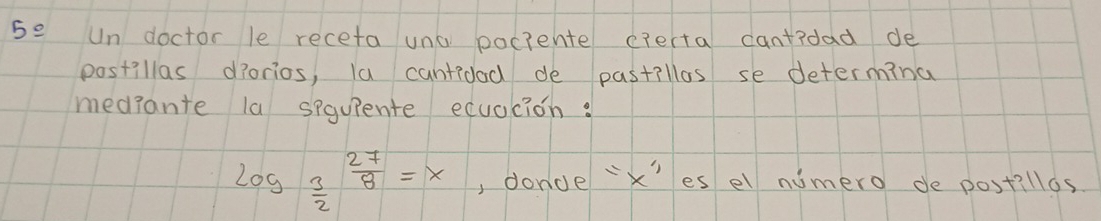 5º Un doctor le receta una paciente cierta cantidad de
pastillas diarios, la cantidad de pastillas se determina
mediante la siguiente ecuación:
log 3/2 27/8 = x, donde "x" es el número de pastillas.